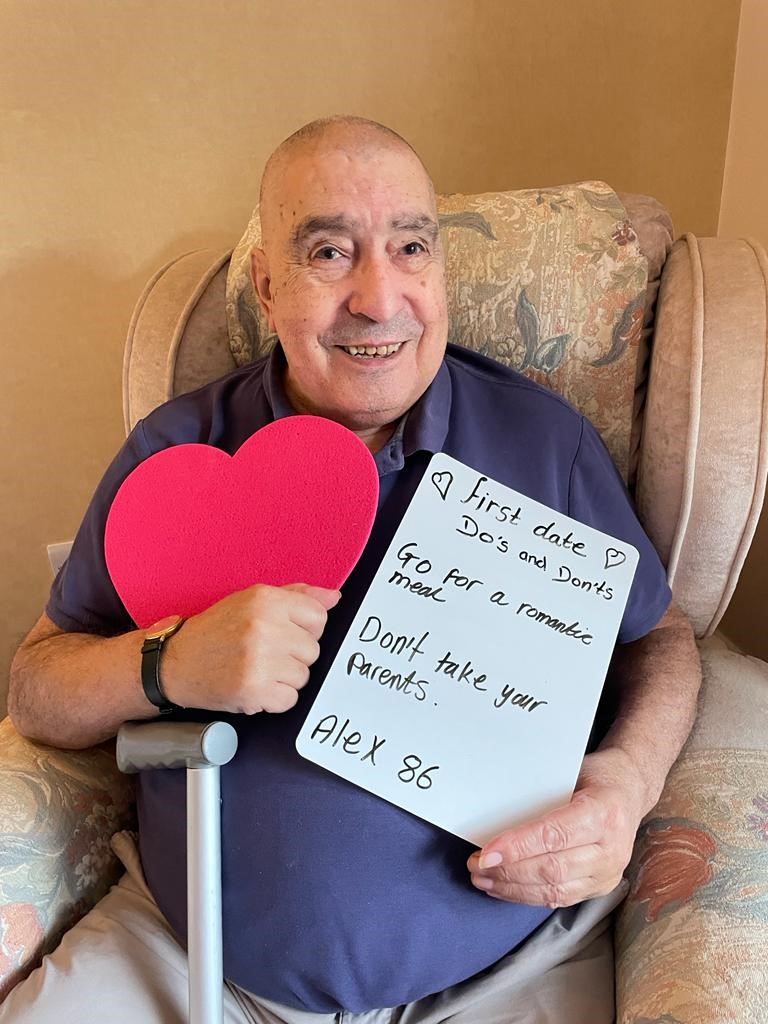 First date
Do's and Don'ts
Go for a romantic
meal
Don't take your
Parents.
Alex 86